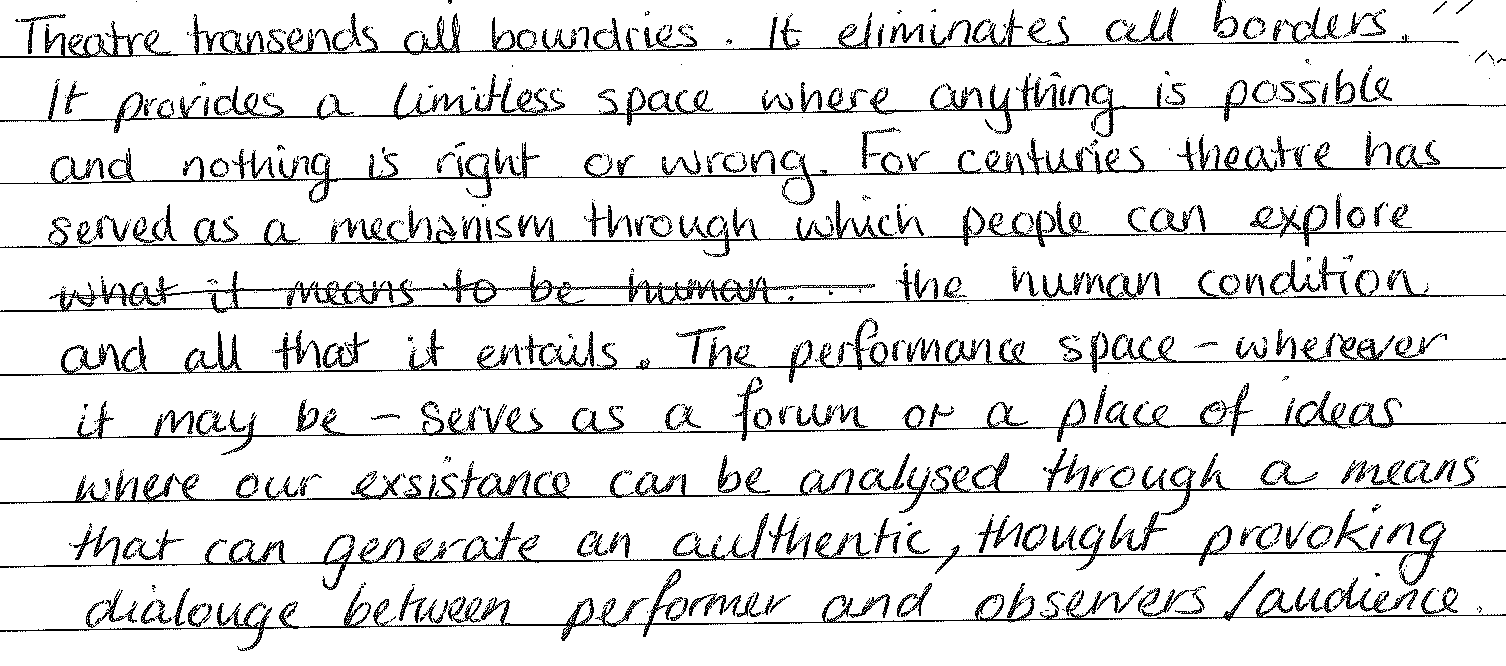 Theatre transends all boundries. It eliminates all borders.
It provides a limitless space where anything is possible
and nothing is right or wrong. For centuries theatre has
served as a mechanism through which people can explore
what it means to be human... the human condition
and all that it entails. The performance space - wherever
it may be - serves as a forum or a place of ideas
where our exsistance can be analysed through a means
that can generate an aulthentic, thought provoking
dialouge between performer and observers/audience.